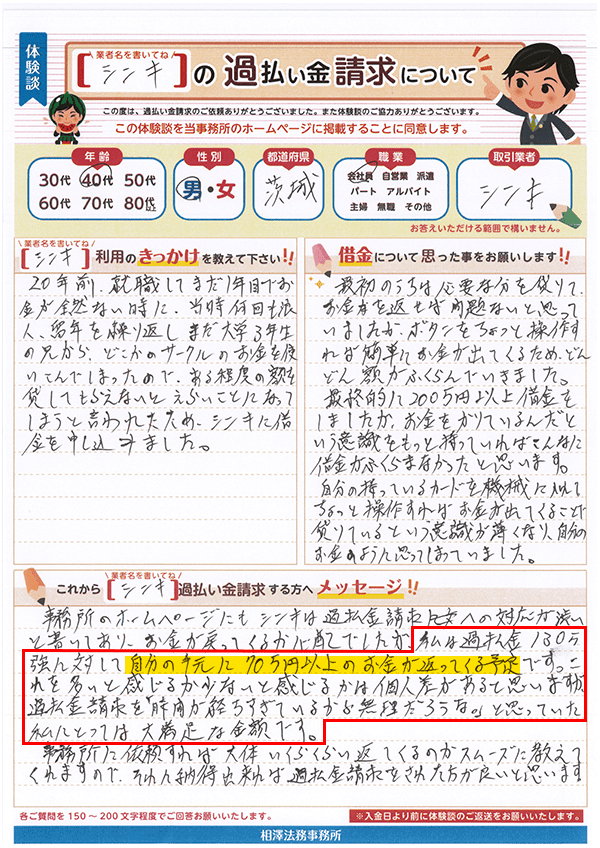 体験談
業者名を書いてね
[シンキ]の過払い金請求について
この度は、過払い金請求のご依頼ありがとうございました。また体験談のご協力ありがとうございます。
この体験談を当事務所のホームページに掲載することに同意します。
年齢
30代 40代 50代
60代 70代 80代以上
性別
男・女
都道府県
茨城
職業
会社員 自営業 派遣
パート アルバイト
主婦 無職 その他
取引業者
シンキ
お答えいただける範囲で構いません。
業者名を書いてね
[シンキ]利用のきっかけを教えて下さい!!
20年前、就職してまだ1年目でお
金が全然ない時に、当時何回も浪
人、留年を繰り返しまだ大学3年生
の兄から、どこかのサークルのお金を使
いこんでしまったので、ある程度の額を
貸してもらえないとえらいことになって
しまうと言われたため、シンキに借
金を申し込みました。
借金について思った事をお願いします!!
最初のうちは必要な分を借りて、
お金を返せば問題ないと思って
いましたが、ボタンをちょっと操作す
れば簡単にお金が出てくるため、どん
どん額がふくらんでいきました。
最終的に200万円以上借金を
しましたが、お金をかりているんだと
いう意識をもっと持っていればこんなに
借金がふくらまなかったと思います。
自分の持っているカードを機械に入れて
ちょっと操作すればお金が出てくることで
借りているという意識が薄くなり、自分の
お金のように思ってしまっていました。
業者名を書いてね
これから[シンキ]過払い金請求する方へメッセージ!!
事務所のホームページにもシンキは過払金請求 への対応が渋い
と書いてあり、お金が戻ってくるか心配でしたが、私は過払金130万
強に対して自分の手元に70万円以上のお金が返ってくる予定です。こ
れを多いと感じるか少ないと感じるかは個人差があると思いますが、
過払金請求を「時間が経ちすぎているから無理だろうな。」と思っていた
私にとっては大満足な金額です。
事務所に依頼すれば大体いくらくらい返してくるのかスムーズに教えて
くれますので、それに納得出来れば過払金請求をされた方が良いと思います
各ご質問を150〜200文字程度でご回答お願いいたします。
※入金日より前に体験談のご返送をお願いします。
相澤法務事務所